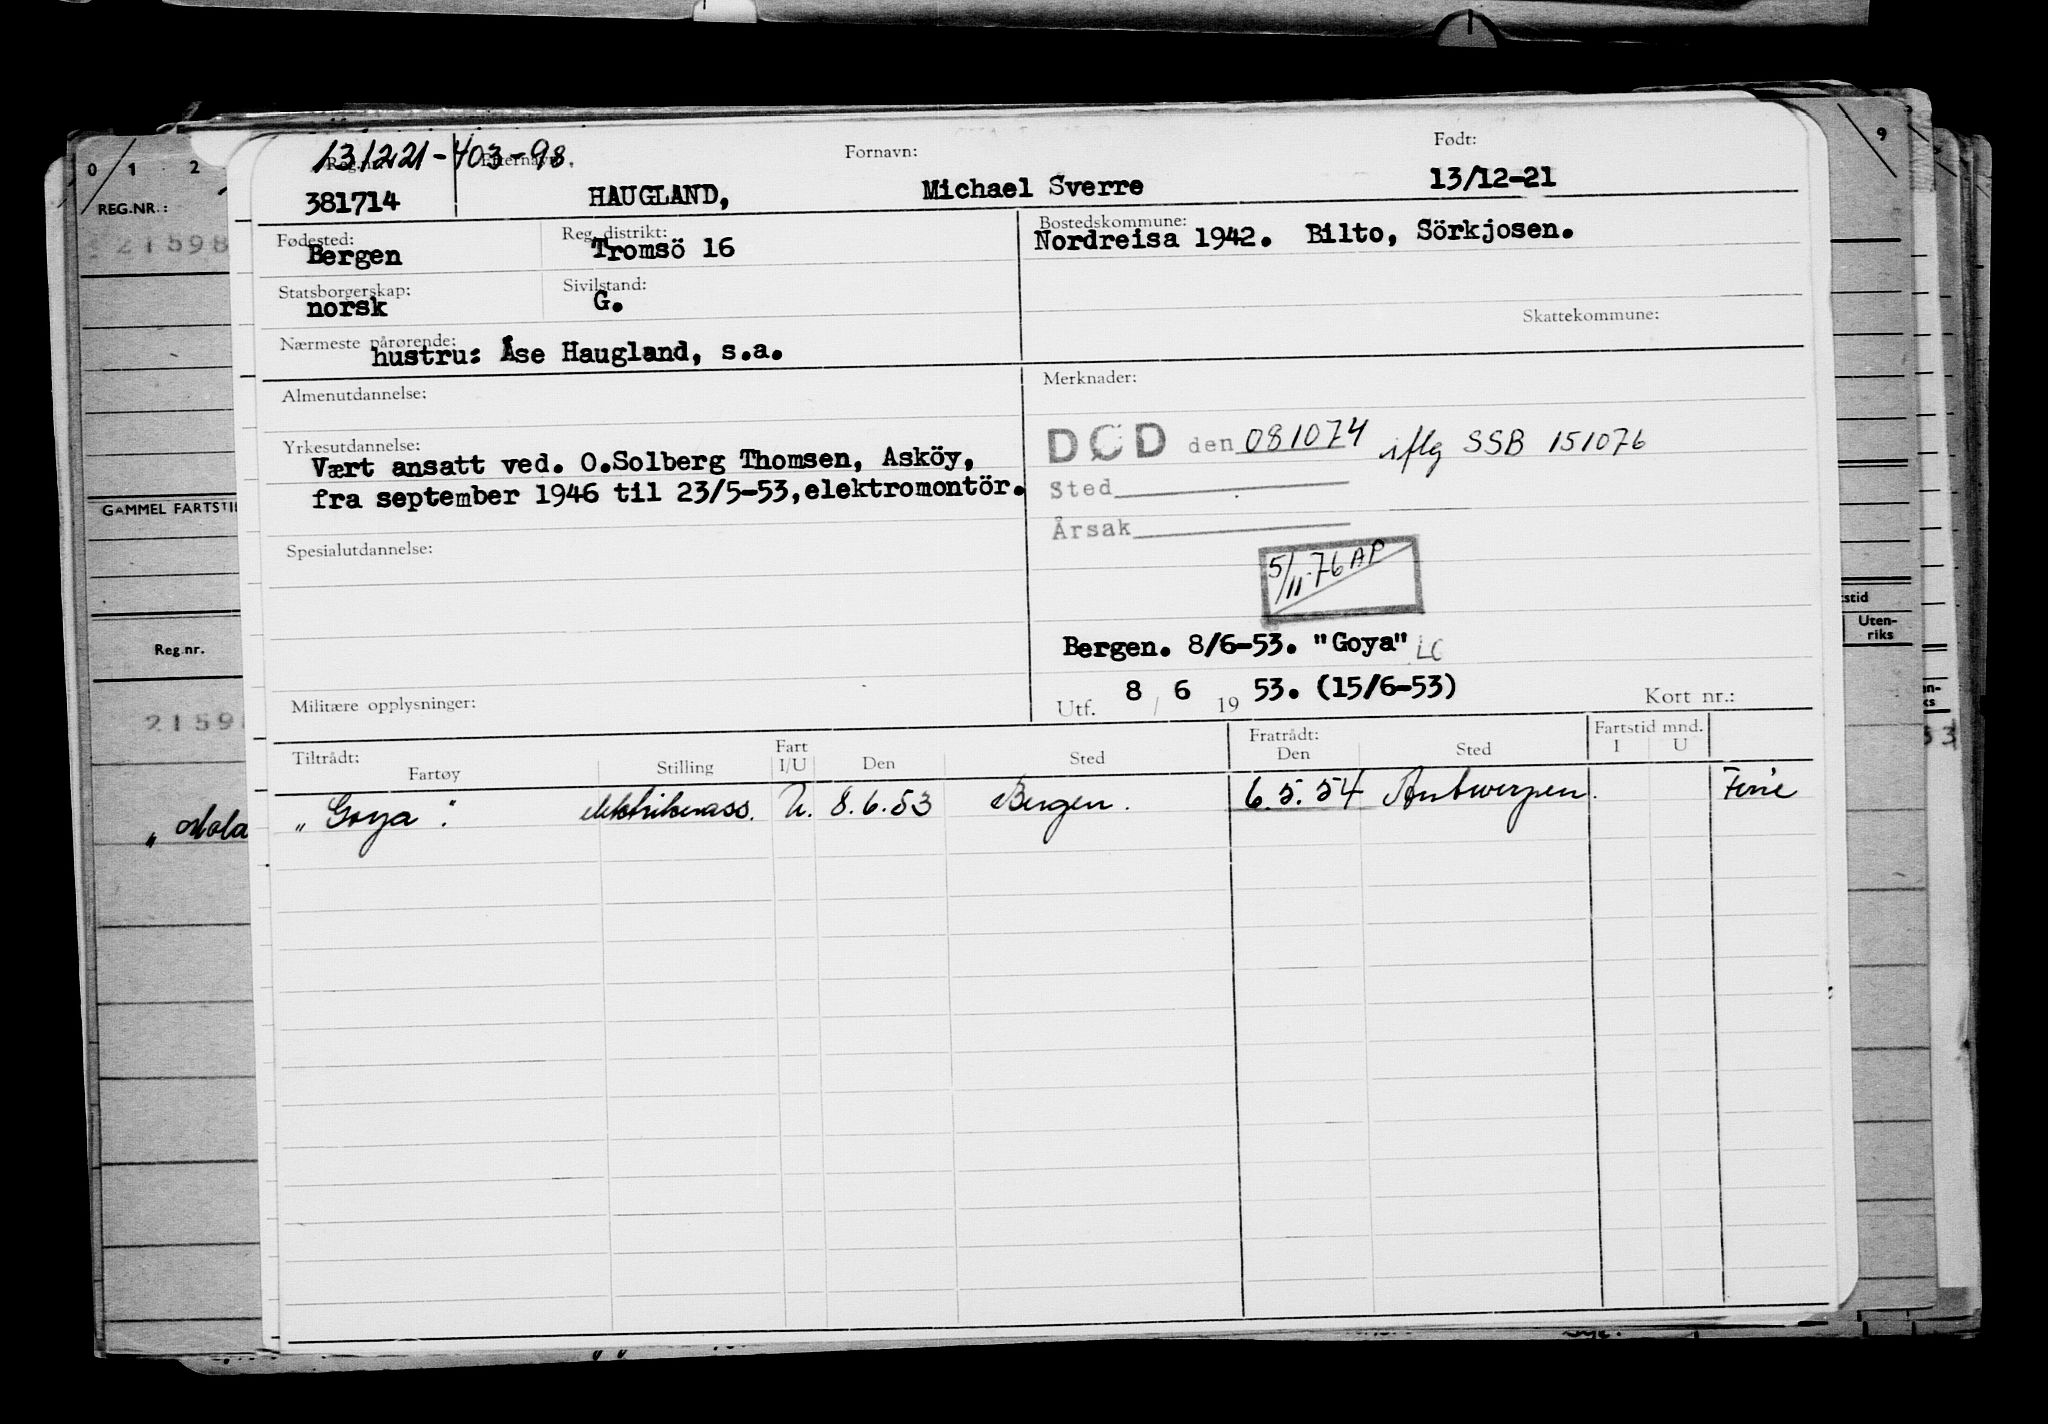 0 1 2 9
REG.NR.:
21598
GAMMEL FARTSTI
Reg.nr.
2159
„ Mola
stid
Uten-
riks
131221-403-98
Reg.nr. Etternavn: Fornavn: Født:
381714 HAUGLAND, Michael Sverre 13/12-21
Fødested: Reg. distrikt: Bostedskommune:
Bergen Tromsö 16 Nordreisa 1942. Bilto, Sörkjosen.
Statsborgerskap: Sivilstand:
norsk G.
Skattekommune:
Nærmeste pårørende:
hustru: Åse Haugland, s.a.
Almenutdannelse: Merknader:
DØD den 081074 iflg SSB 151076
Yrkesutdannelse:
Vært ansatt ved. O.Solberg Thomsen, Asköy,
fra september 1946 til 23/5-53,elektromontör.
Sted
Årsak
Spesialutdannelse:
5/11-76 AP
Bergen. 8/6-53. "Goya" LC
Militære opplysninger:
Utf. 8 / 6 19 53. (15/6-53) Kort nr.:
Tiltrådt: Fart Fratrådt: Fartstid mnd.
Fartøy Stilling I/U Den Sted Den Sted I U
„Goya". elektrikerass. U. 8.6.53 Bergen. 6.5.54 Antwerpen. Ferie